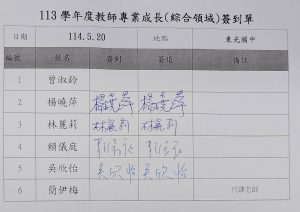 113 學年度教師專業成長(綜合領域)簽到單
日期 114.5.20 地點 東光國中
編號 姓名 簽到 簽退 備註
1 曾淑鈴
2 楊曉萍 楊曉萍 楊曉萍
3 林麗莉 林麗莉 林麗莉
4 賴儀庭
5 吳欣怡 吳欣怡 吳欣怡
6 簡伊梅 代課老師